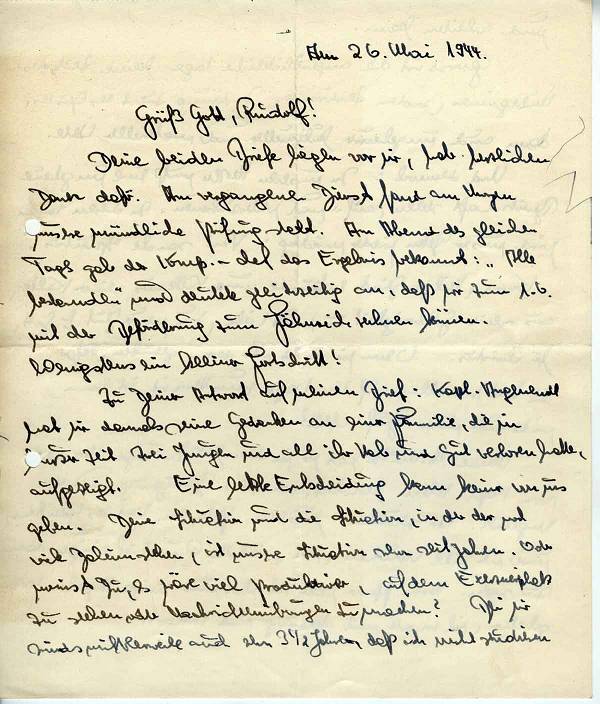 Am 26. Mai 1944.
Grüß Gott, Rudolf!
Deine beiden Briefe liegen vor mir, hab herzlichen
Dank dafür. Am vergangenen Dienst fand am Morgen
unsre mündliche Prüfung statt. Am Abend des gleichen
Tags gab der Komp.-Chef das Ergebnis bekannt: „Alle
bestanden" und deutete gleichzeitig an, daß wir zum 1.6.
mit der Beförderung zum Fähnrich rechnen können.
Wenigstens ein kleiner Fortschritt!
Zu Deiner Antwort auf meinen Brief: Kapl. Angenendt
hat mir damals seine Gedanken an einer Familie, die in
unsrer Zeit drei Jungen und all ihr Hab und Gut verloren hatte,
aufgezeigt. Eine letzte Entscheidung kann keiner von uns
geben. Deine Situation und die Situation, in der der und
viele Soldaten stehen, ist unsre Situation schon seit Jahren. Oder
meinst Du, es wäre viel produktiver, auf dem Exerzierplatz
zu stehen oder Nachrichtenübungen zu machen? Bei mir
sinds mittlerweile auch schon 3 1/2 Jahre, daß ich nicht studieren